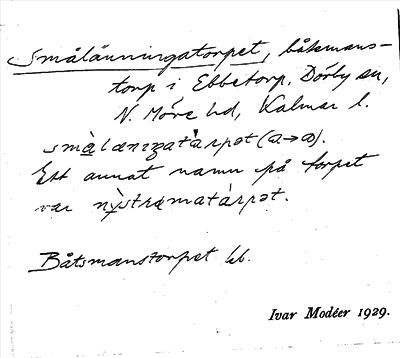 Smålänningatorpet, båtsmans-
torp i Ebbetorp, Dörby sn,
N. Möre hd, Kalmar l.
smàlæniŋatàrpət (a→ɑ).
Ett annat namn på torpet
var nỳstrømatàrpət.
Båtsmanstorpet kb.
Ivar Modéer 1929.